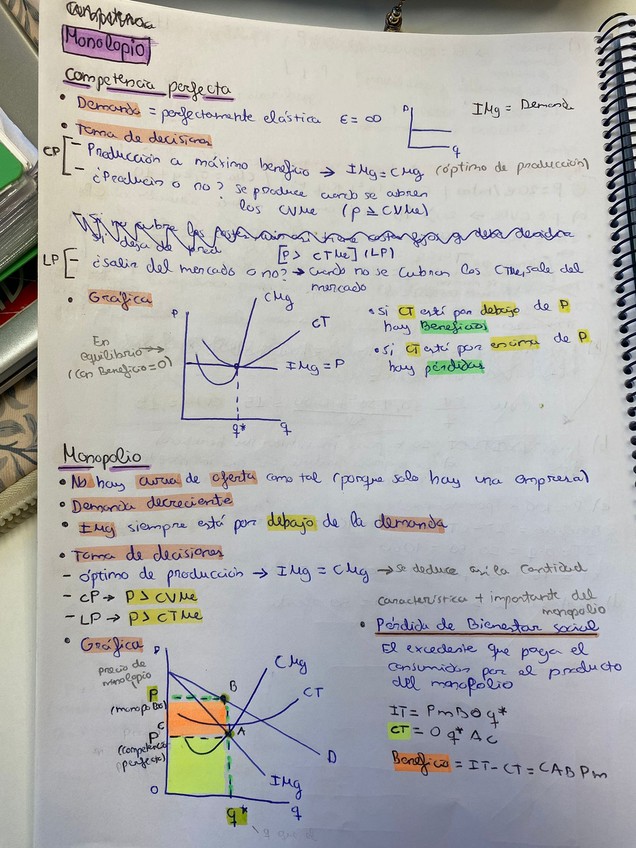 Competencia
Monolopio
Competencia perfecta
• Demanda = perfectamente elástica ε = ∞
P
q
IMg = Demanda
• Toma de decisiones
CP
- Producción a máximo beneficio → IMg = CMg (óptimo de producción)
- ¿Producir o no? se produce cuando se cubren
los CVMe (p ≥ CVMe)
[P > CTMe] (LP)
LP
- ¿salir del mercado o no? → cuando no se cubran los CTMe, sale del
mercado
• Gráfica
P
CMg
CT
IMg = P
q*
q
En
equilibrio →
(con Beneficio = 0)
• Si CT está por debajo de P
hay Beneficios
• Si CT está por encima de P
hay pérdidas
Monopolio
• No hay curva de oferta como tal (porque solo hay una empresa)
• Demanda decreciente
• IMg siempre está por debajo de la demanda
• Toma de decisiones
- óptimo de producción → IMg = CMg → se deduce así la cantidad
- CP → P ≥ CVMe
- LP → P ≥ CTMe
característica + importante del
monopolio
• Pérdida de Bienestar social
El excedente que paga el
consumidor por el producto
del monopolio
IT = PmB0q*
CT = 0q*AC
Beneficio = IT - CT = CABPm
• Gráfica
P
precio de
monolopio
P
(monopolio)
C
P
(competencia
perfecta)
O
B
A
CMg
CT
D
IMg
q*
q